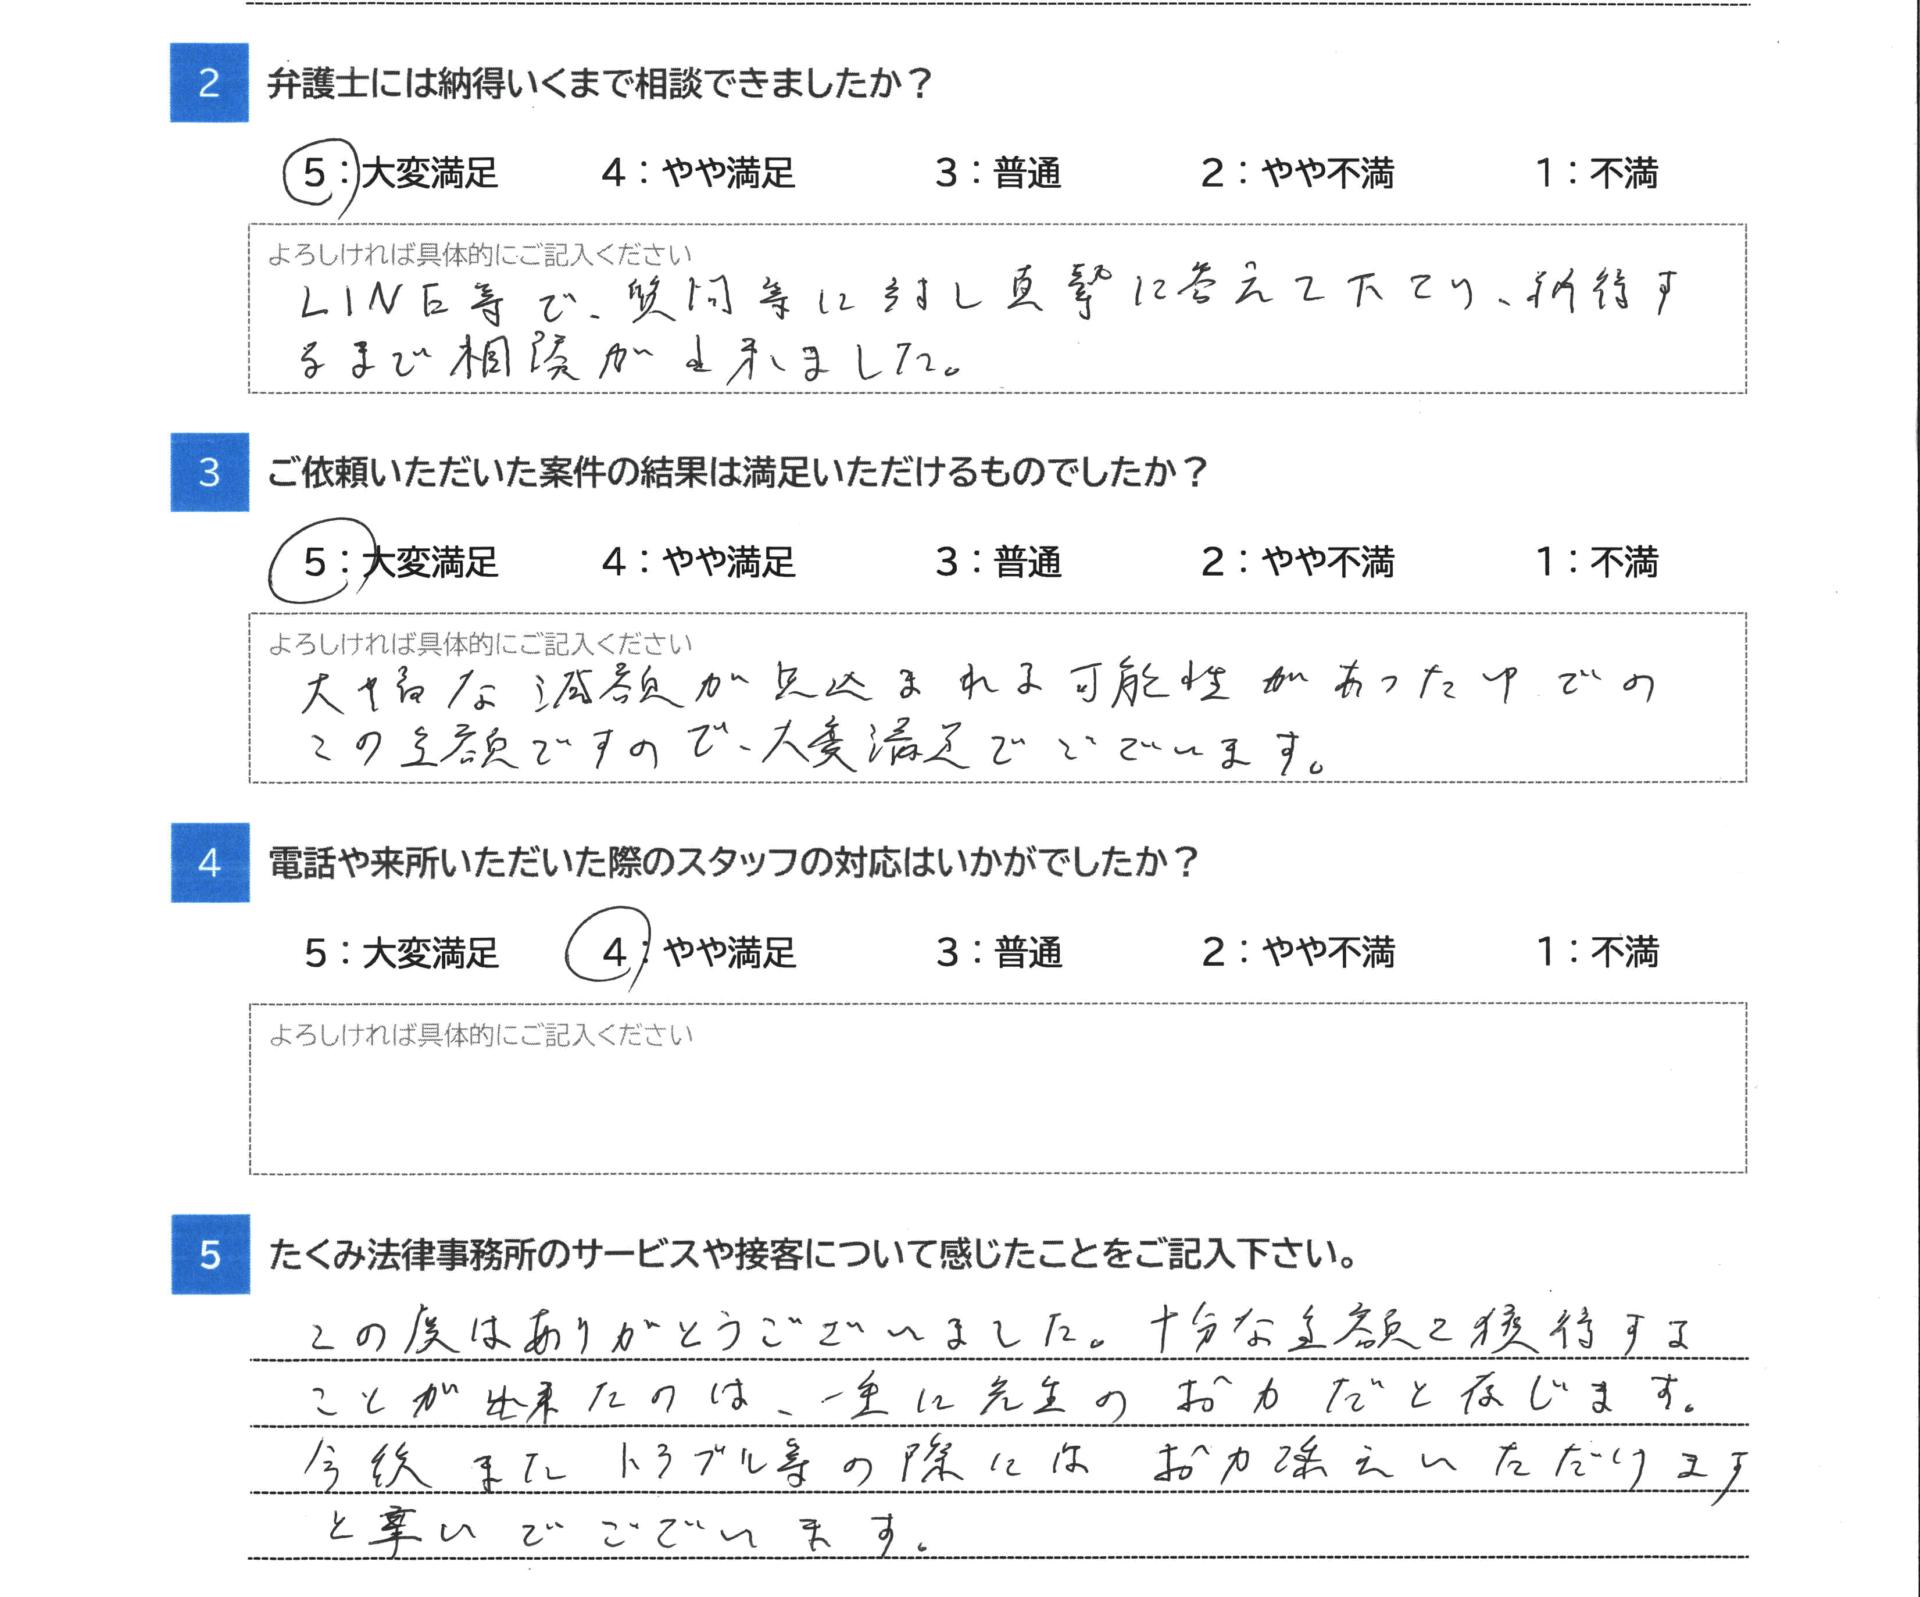 2 弁護士には納得いくまで相談できましたか？
5：大変満足 4：やや満足 3：普通 2：やや不満 1：不満
よろしければ具体的にご記入ください
LINE等で、質問等に対し真摯に答えて下さり、納得す
るまで相談が出来ました。
3 ご依頼いただいた案件の結果は満足いただけるものでしたか？
5：大変満足 4：やや満足 3：普通 2：やや不満 1：不満
よろしければ具体的にご記入ください
大幅な減額が見込まれる可能性があった中での
この金額ですので、大変満足でございます。
4 電話や来所いただいた際のスタッフの対応はいかがでしたか？
5：大変満足 4：やや満足 3：普通 2：やや不満 1：不満
よろしければ具体的にご記入ください
5 たくみ法律事務所のサービスや接客について感じたことをご記入下さい。
この度はありがとうございました。十分な金額を獲得する
ことが出来たのは、一重に先生のお力だと存じます。
今後またトラブル等の際にはお力添えいただけます
と幸いでございます。